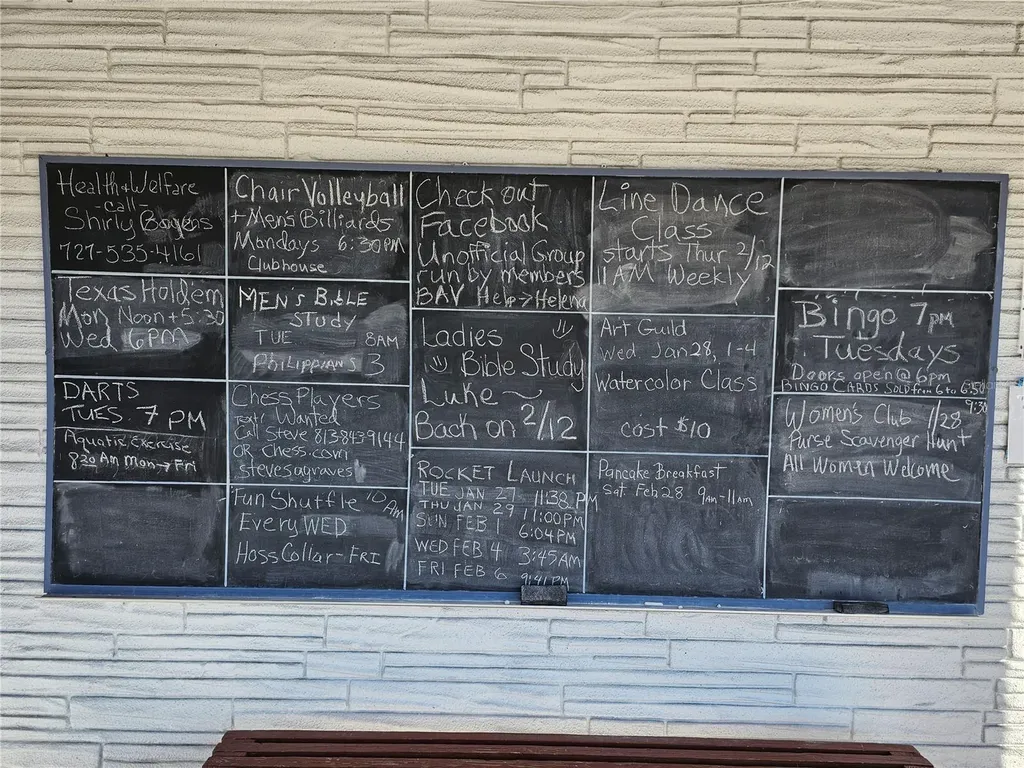 Health & Welfare
- call -
Shirly
727-535-4161
Texas Holdem
Mon Noon + 5:30
Wed 6PM
DARTS
TUES. 7 PM
Aquatic Exercise
8:20 Am Mon → Fri
Chair Volleyball
+ Men's Billiards
Mondays 6:30PM
Clubhouse
MEN'S BIBLE
STUDY
TUE 8AM
PHILIPPIANS 3
Chess Players
text Wanted
Call Steve 8138439144
OR Chess.com
stevesagraves
Fun Shuffle 10 AM
Every WED
Hoss Collar - FRI
Check out
Facebook
Unofficial Group
run by members
BAV Help > Helena
Ladies
Bible Study
Luke ~
Back on 2/12
ROCKET LAUNCH
TUE JAN 27 11:32 PM
THU JAN 29 11:00PM
SUN FEB 1 6:04PM
WED FEB 4 3:45AM
FRI FEB 6 9:41 PM
Line Dance
Class
starts Thur 2/12
11 AM Weekly
Art Guild
Wed Jan 28, 1-4
Watercolor Class
cost $10
Pancake Breakfast
Sat. Feb 28 9am-11am
Bingo 7pm
Tuesdays
Doors open @ 6pm
BINGO CARDS SOLD from 6 to 6:50
Women's Club 1/28 9:30
Purse Scavenger Hunt
All Women Welcome